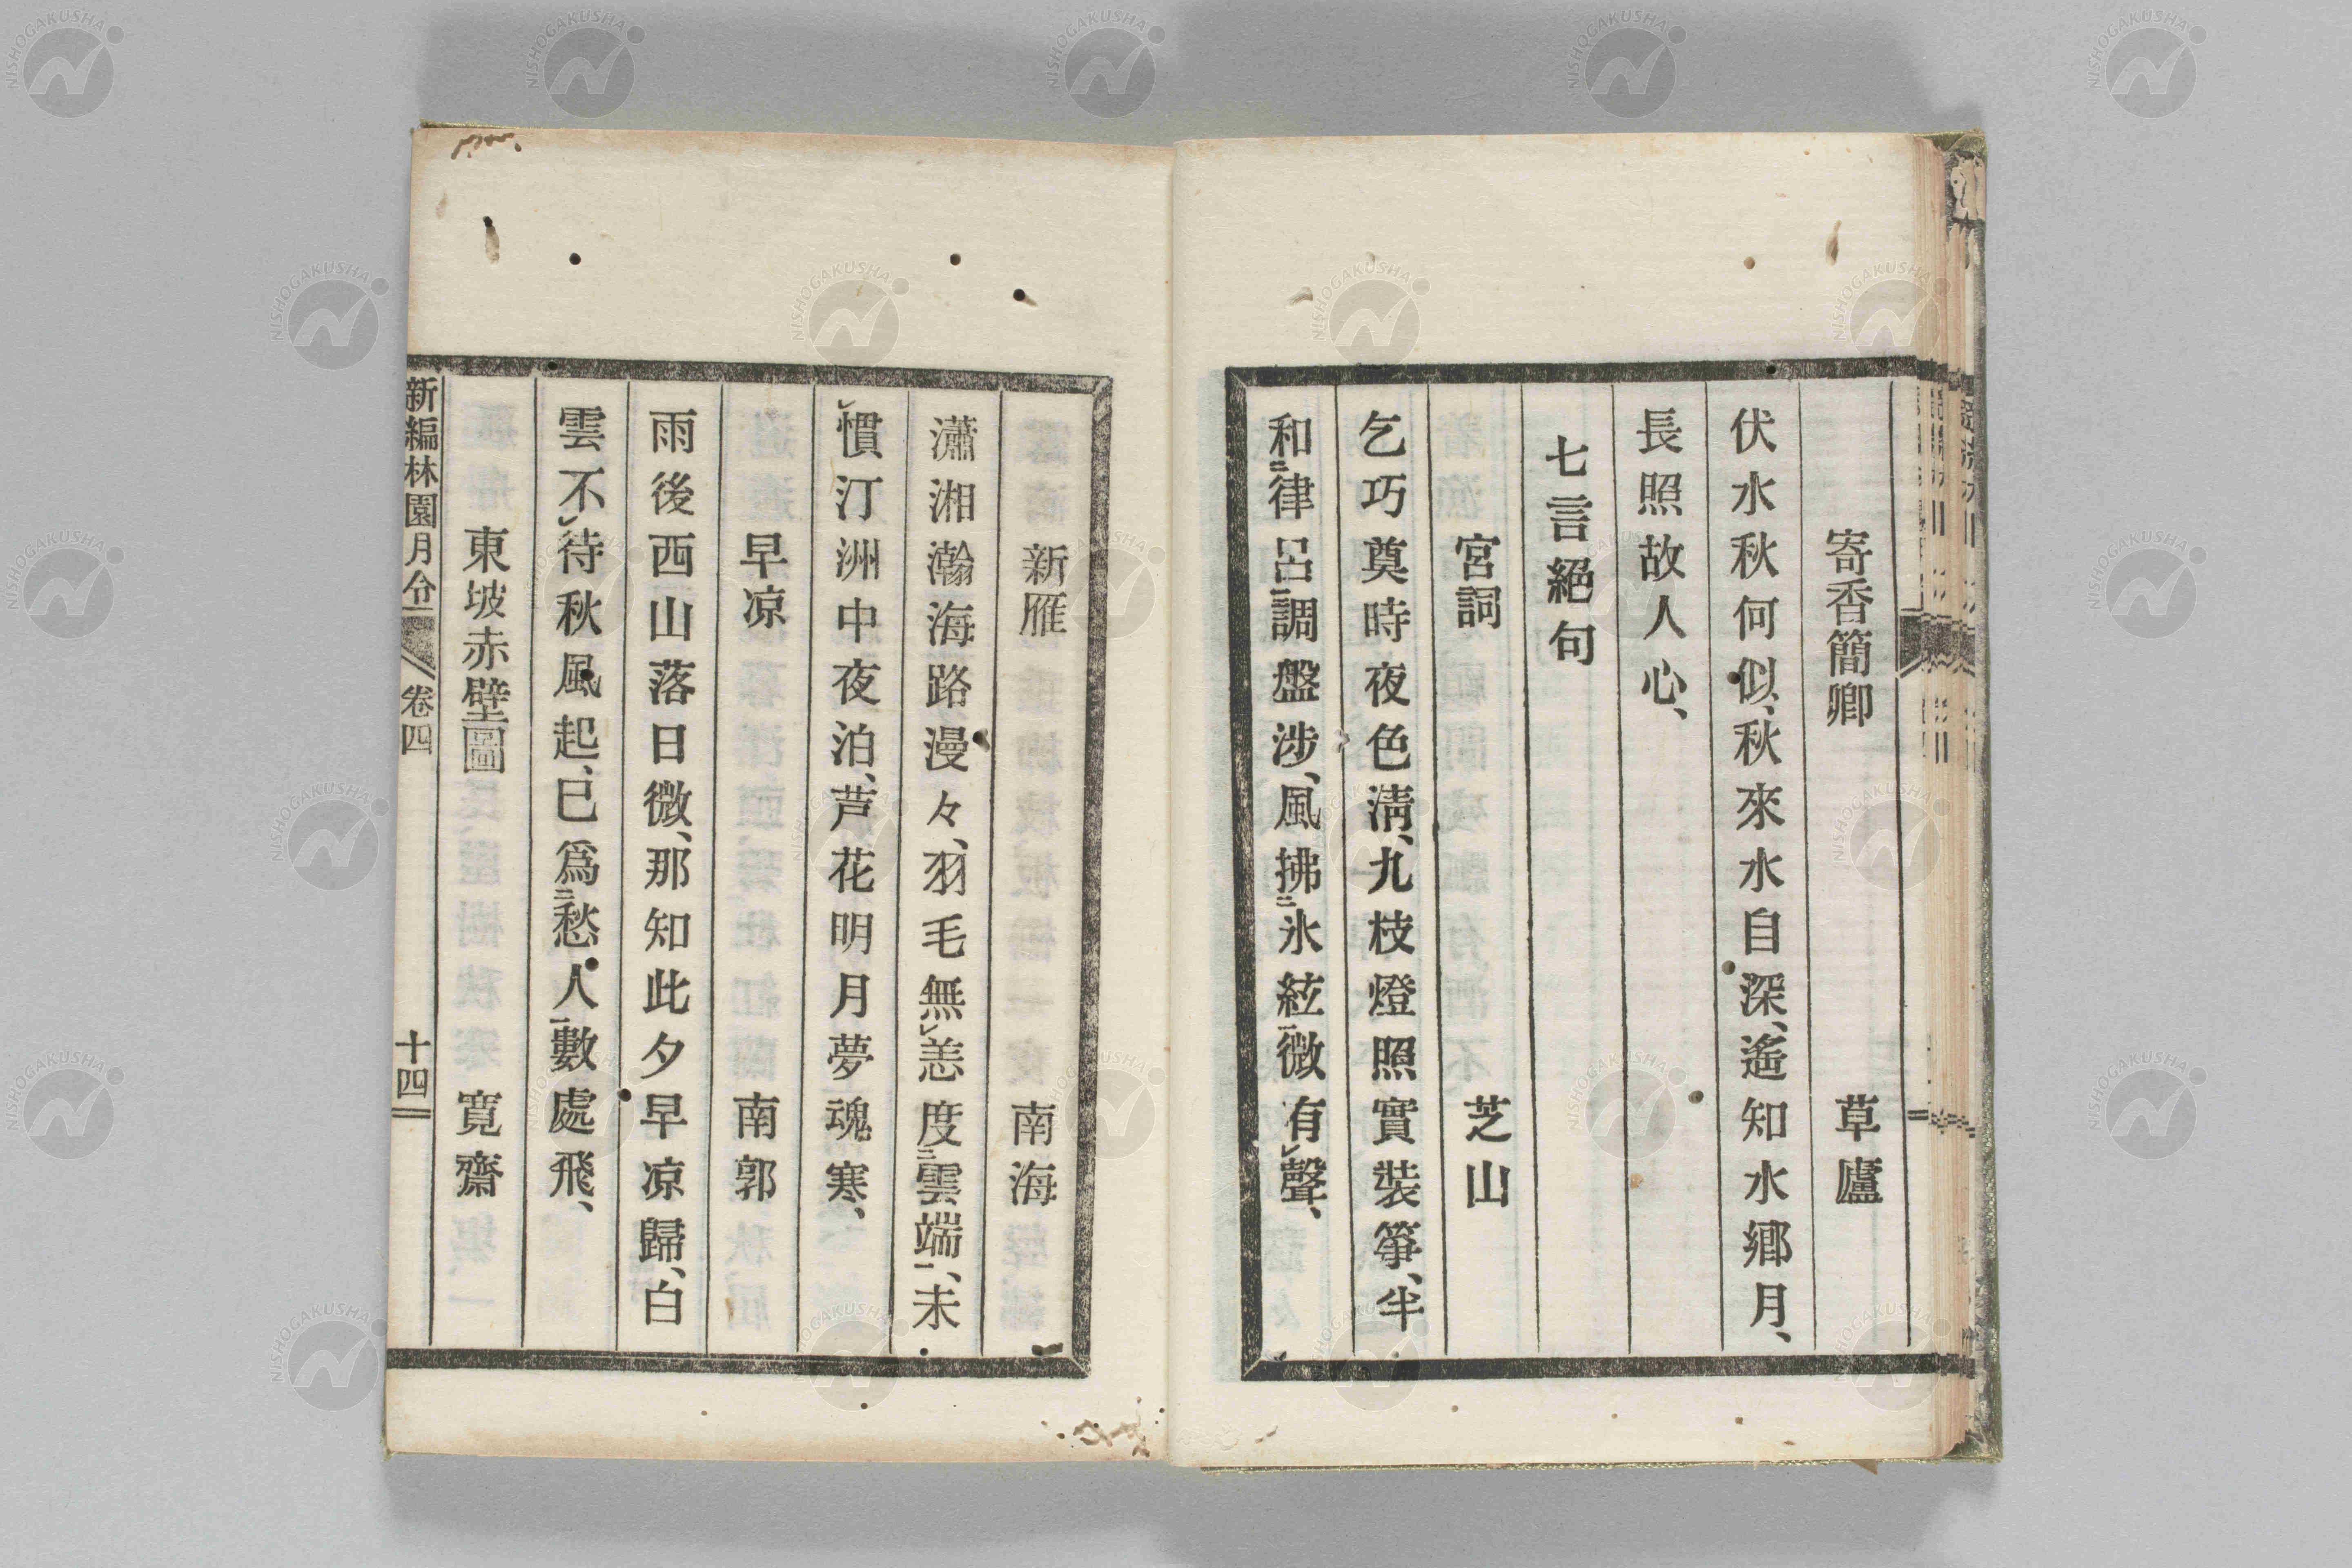 寄香簡卿　草廬
伏水秋何似、秋來水自深、遙知水鄉月、
長照故人心、
七言絕句
宮詞　芝山
乞巧奠時夜色淸、九枝燈照實裝箏、半
和㆓律呂㆒調盤涉、風拂㆓氷絃㆒微有㆑聲、
新雁　南海
瀟湘瀚海路漫々、羽毛無㆑恙度㆓雲端㆒、未
㆑慣汀洲中夜泊、芦花明月夢魂寒、
早凉　南郭
雨後西山落日微、那知此夕早凉歸、白
雲不㆑待秋風起、已爲㆓愁人㆒數處飛、
東坡赤壁圖　寬齋
新編林園月令　卷四　十四
NISHOGAKUSHA